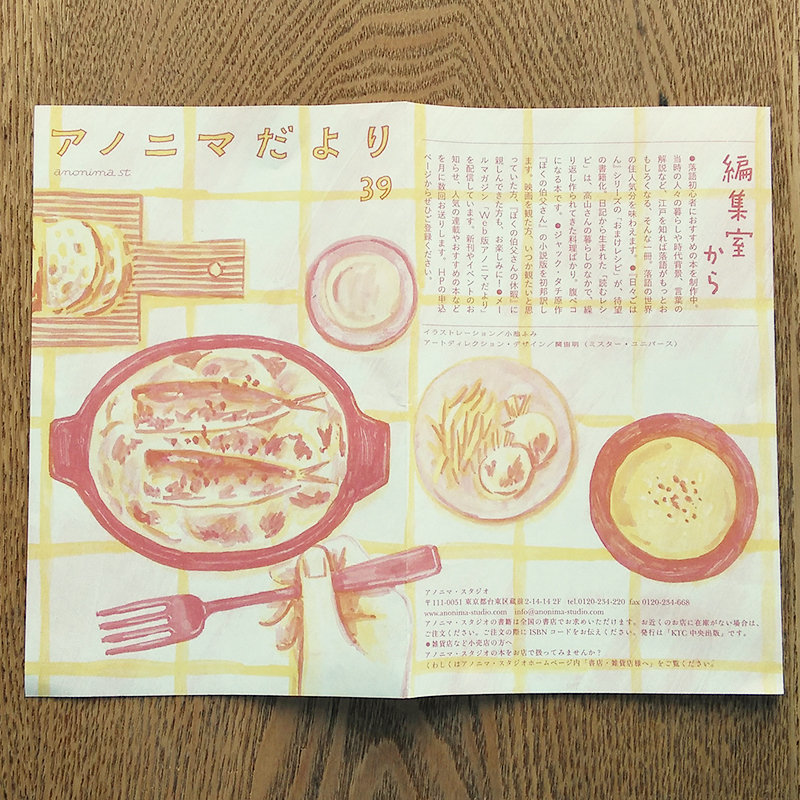 アノニマだより
anonima st
39
編集室
から
●落語初心者におすすめの本を制作中。
当時の人々の暮らしや時代背景、言葉の
解説など、江戸を知れば落語がもっとお
もしろくなる、そんな一冊。落語の世界
の住人気分を味わえます。●『日々ごは
ん』シリーズの「おまけレシピ」が、待望
の書籍化。日記から生まれた『読むレシ
ピ』は、高山さんの暮らしのなかで、繰
り返し作られてきた料理ばかり。腹ペコ
になる本です。●ジャック・タチ原作
『ぼくの伯父さん』の小説版を初邦訳し
ます。映画を観た方、いつか観たいと思
っていた方、『ぼくの伯父さんの休暇』に
親しんできた方も、お楽しみに！●メー
ルマガジン「Web版アノニマだより」
を配信しています。新刊やイベントのお
知らせ、人気の連載やおすすめの本など
を月に数回お送りします。HPの申込
ページからぜひご登録ください。
イラストレーション／小池ふみ
アートディレクション・デザイン／関宙明（ミスター・ユニバース）
アノニマ・スタジオ
〒111-0051 東京都台東区蔵前2-14-14 2F tel.0120-234-220 fax 0120-234-668
www.anonima-studio.com info@anonima-studio.com
アノニマ・スタジオの書籍は全国の書店でお求めいただけます。お近くのお店に在庫がない場合は、
ご注文ください。ご注文の際にISBNコードをお伝えください。発行は「KTC中央出版」です。
●雑貨店など小売店の方へ
アノニマ・スタジオの本をお店で扱ってみませんか？
くわしくはアノニマ・スタジオホームページ内「書店・雑貨店様へ」をご覧ください。